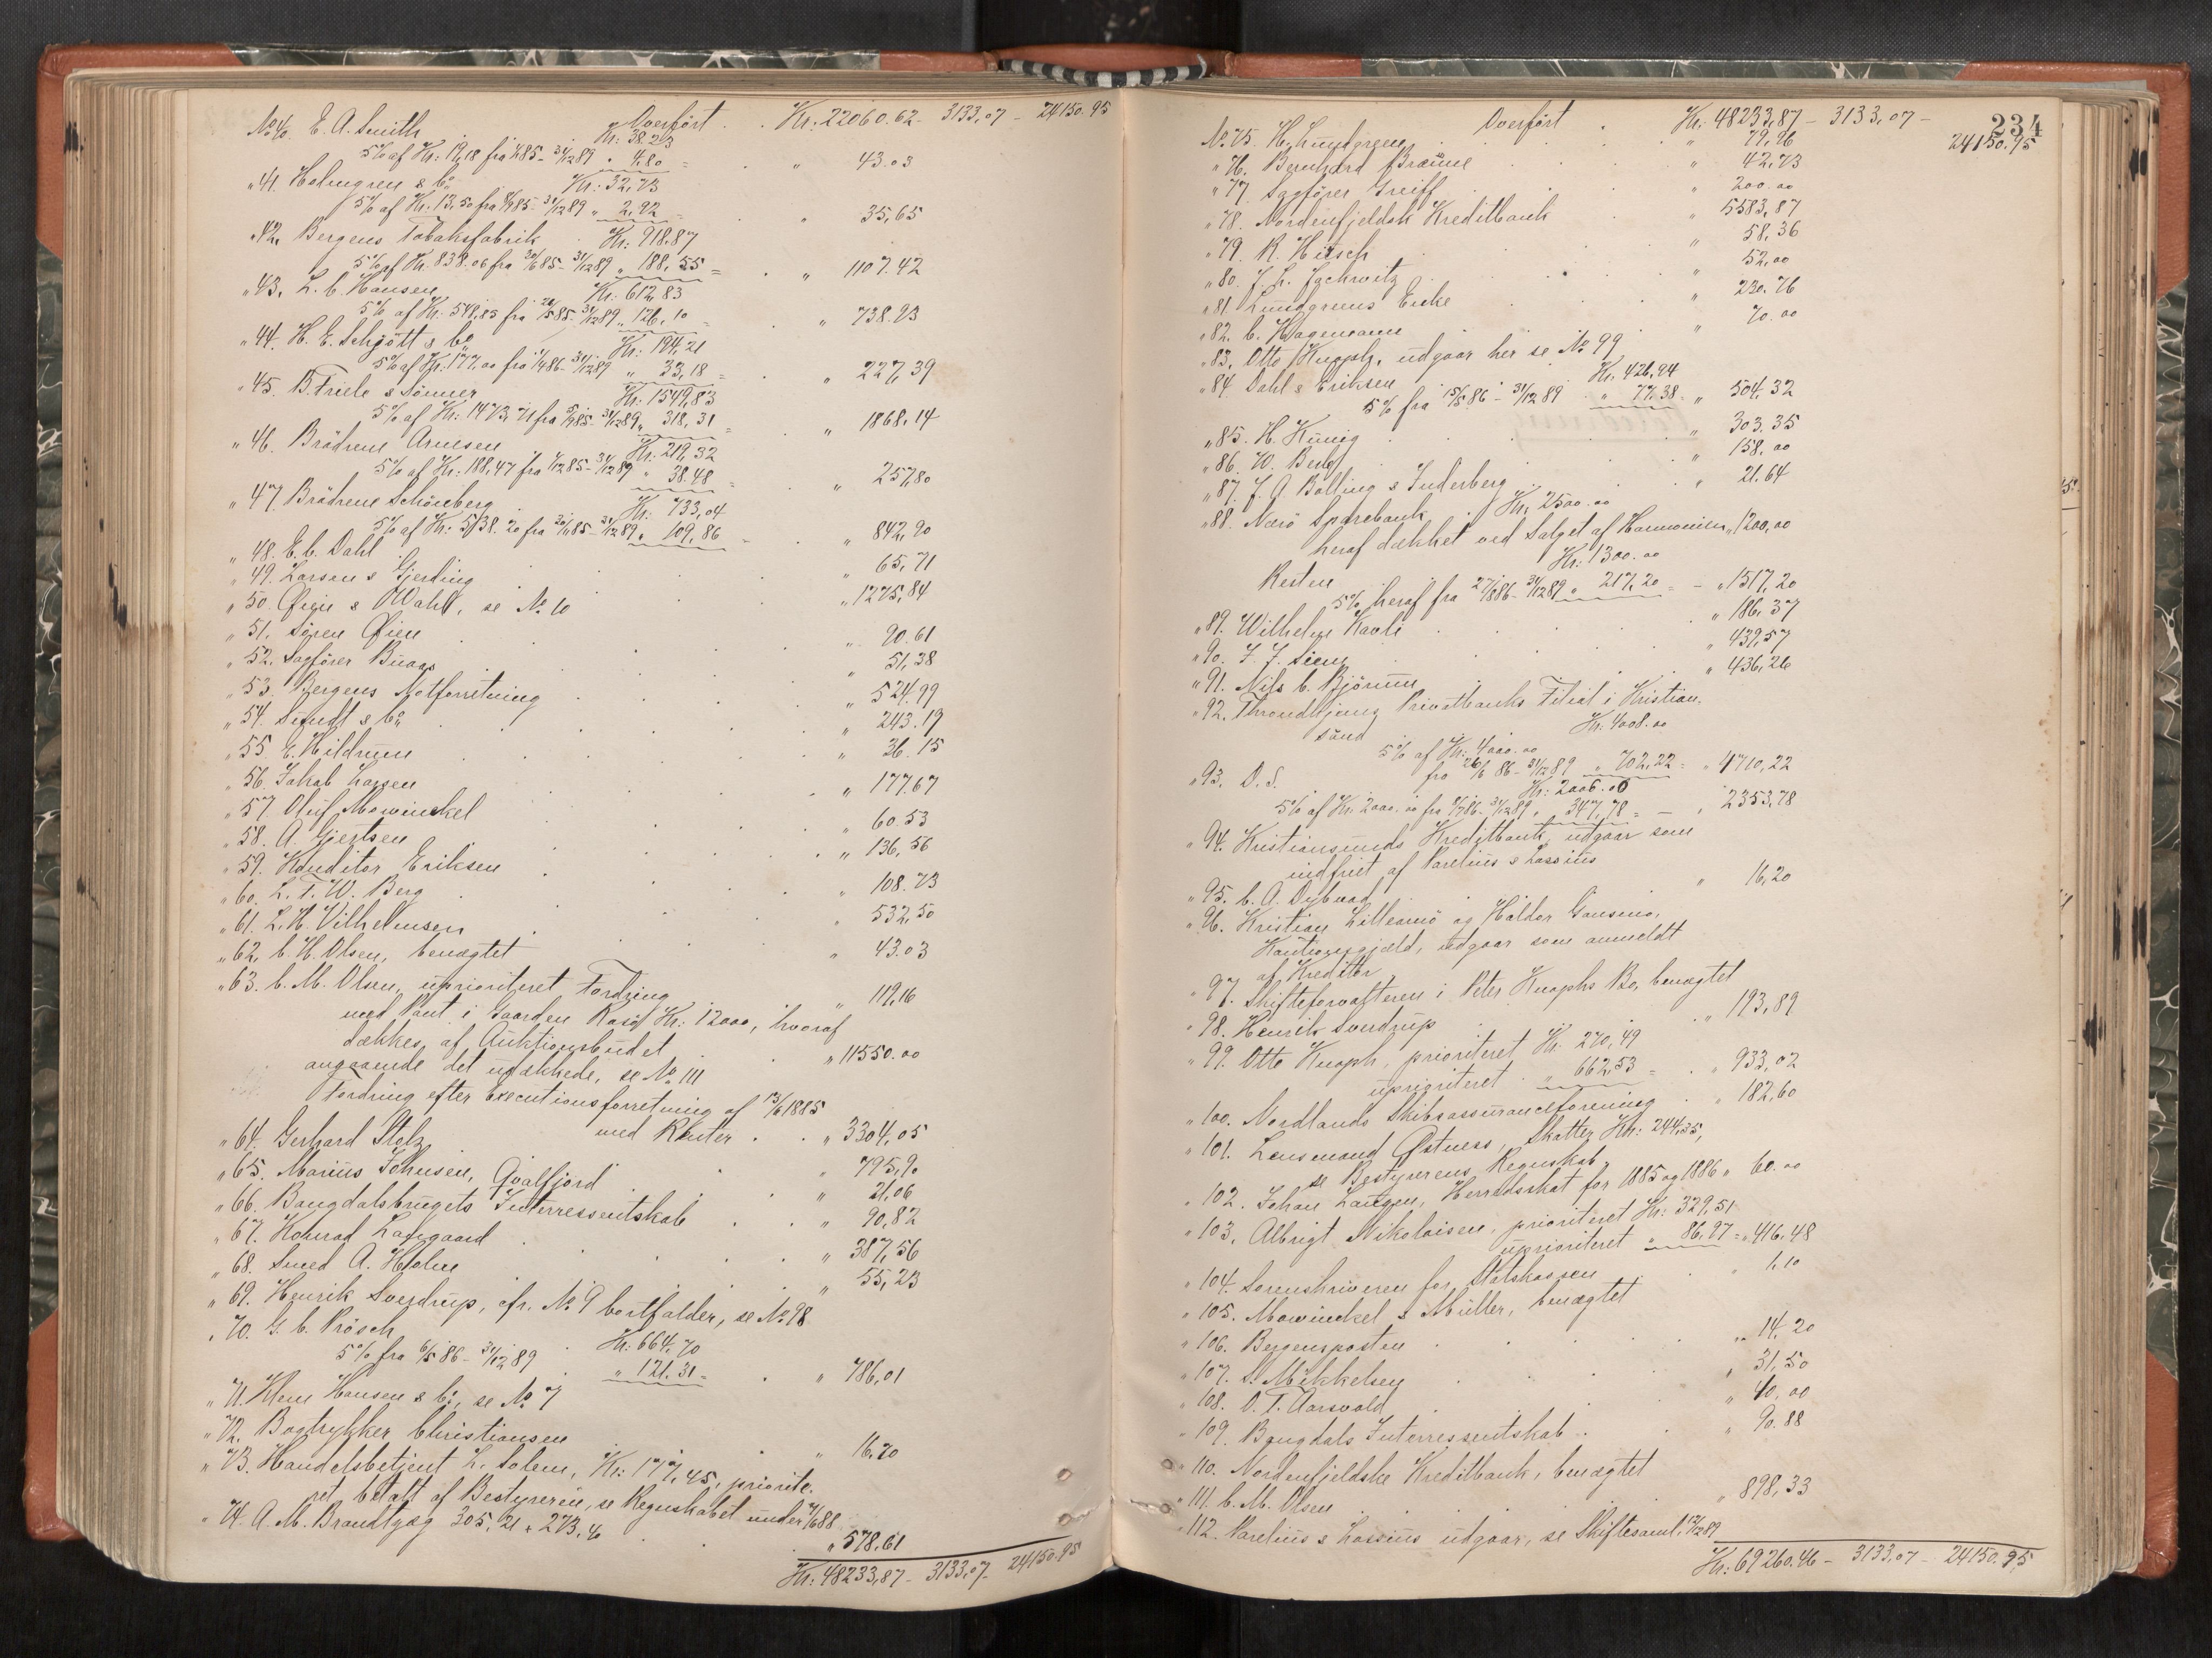 Overført . . Kr: 22060.62 - 3133,07 - 24150.95
No 40. E. A. Smith Kr: 38.23
5% af Kr: 19,18 fra 85 - 31/12 89 " 4.80 = " 43.03
" 41. Holmgren & Co Kr: 32,73
5% af Kr. 13,50 fra 85 - 31/12 89 " 2,92 " 35,65
" 42. Bergens Tobaksfabrik Kr: 918.87
5% af Kr. 838.06 fra 85 - 31/12 89 " 188,55 = " 1107.42
" 43. L. C. Hansen Kr: 612,83
5% af Kr: 548,85 fra 85 - 31/12 89 " 126,10 = " 738.93
" 44. H. E. Schjött & Co Kr: 194,21
5% af Kr: 177,00 fra 86 - 31/12 89 " 33,18 = " 227,39
" 45. B. Friele & Sönner Kr: 1549,83
5% af Kr: 1473,71 fra 85 - 31/12 89 " 318,31 = " 1868.14
" 46. Brödrene Arnesen Kr: 219,32
5% af Kr: 188,47 fra 85 - 31/12 89 " 38.48 = " 257,80
" 47. Brödrene Schönberg Kr: 733,04
5% af Kr: 538.20 fra 85 - 31/12 89 " 109,86 = " 842,90
" 48. E. C. Dahl " 65,71
" 49. Larsen & Gjerding " 1275,84
" 50. Øien & Wahl, se No 10
" 51. Sören Øien " 90.61
" 52. Sagförer Buaas " 51,38
" 53. Bergens Notforretning " 524.99
" 54. Sundt & Co " 243.19
" 55 E. Hildrum " 36.15
" 56 Jakob Larsen " 177.67
" 57. Oluf Mowinckel " 60.53
" 58. A. Gjertsen " 136,56
" 59. Konditor Eriksen " 108.73
" 60. L. T. W. Berg " 532,50
" 61. L. H. Vilhelmsen " 43.03
" 62. C. H. Olsen, benægtet " 119,16
" 63. C. M. Olsen, uprioriteret Fordring
med Pant i Gaarden Rasö Kr: 12000, hvoraf
dækkes af Auktionsbudet " 11550.00
angaaende det udækkede, se No 111
Fordring efter Executionsforretning af 13/6 1885
med Renter . . " 3304,05
" 64. Gerhard Stolz " 795,90
" 65. Marius Johnsen, Qvalfjord " 21,06
" 66. Bangdalsbrugets Interressentskab " 90,82
" 67. Konrad Langaard " 387,56
" 68. Smed A. Holm " 55,23
" 69. Henrik Sverdrup, cfr. No 9 bortfalder, se No 98
" 70. G. C. Prösch Kr: 664,70
5% fra 6/5 86 - 31/12 89 " 121.31 = " 786,01
" 71. Klem Hansen & Co, se No 7
" 72. Bogtrykker Christiansen " 16.70
" 73. Handelsbetjent L. Solem, Kr: 177,45, priorite-
ret betalt af Bestyreren, se Regnskabet under 88
" 74. A. M. Brandtzæg 305,21 + 273,40 " 578,61
Kr: 48233,87 - 3133,07 - 24150.95
234
Overført . Kr: 48233,87 - 3133,07 - 24150.95
No 75. H. Lundgreen " 79,26
" 76. Bernhard Bræmne " 42,73
" 77. Sagförer Greiff " 200.00
" 78. Nordenfjeldsk Kreditbank " 5583,87
" 79. R. Hitsch " 58,36
" 80. J. L. Jachwitz " 52,00
" 81. Lundgreens Enke " 230.76
" 82. C. Hagemann " 70.00
" 83. Otto Knoph, udgaar her se No 99
" 84. Dahl & Eriksen Kr. 426,94
5% fra 15/5 86 - 31/12 89 " 77,38 = " 504,32
" 85. H. König " 303.35
" 86. W. Berg " 158,00
" 87. J. A. Bolling & Suderberg " 21.64
" 88. Nærö Sparebank Kr: 2500.00
heraf dækket ved Salget af Harmonien " 1200,00
Resten Kr: 1300.00
5% heraf fra 27/8 86 - 31/12 89 " 217,20 = - " 1517,20
" 89. Wilhelm Kavli " 186.37
" 90. F. J. Siem " 439,57
" 91. Nils C. Bjørum " 436,26
" 92. Throndhjems Privatbanks Filial i Kristian-
sund Kr: 4008.00
5% af Kr: 4000.00
fra 26/6 86 - 31/12 89 " 702,22 = " 4710,22
" 93. D. S. Kr: 2006.00
5% af Kr. 2000.00 fra 86 - 31/12 89 " 347,78 = - " 2353,78
" 94. Kristiansunds Kreditbank, udgaar som
indfriet af Parelius & Lossius
" 95. C. A. Dybvad " 16,20
" 96. Kristian Lilleamö og Haldor Gansmo,
Kautionsgjæld, udgaar som anmeldt
af Kreditor
" 97. Skifteforvalteren i Peter Knophs Bo, benægtet
" 98. Henrik Sverdrup " 193,89
" 99. Otto Knoph, prioriteret Kr. 270,49
uprioriteret " 662,53 = . " 933,02
" 100. Nordlands Skibsassuranceforening " 182,60
" 101. Lensmand Østness, Skatter Kr: 244,35,
se Bestyrerens Regnskab
" 102. Johan Langen, Herredsskat for 1885 og 1886 " 60.00
" 103. Albrigt Nikolaisen, prioriteret Kr: 329,51
uprioriteret " 86,97 = " 416,48
" 104. Sorenskriveren for Statskassen " 1,10
" 105. Mowinckel & Müller, benægtet
" 106. Bergensposten " 14,20
" 107. S. Mikkelsen " 31,50
" 108. O. T. Aarsvold " 40,00
" 109. Bangdals Interressentskab " 90.88
" 110. Nordenfjeldske Kreditbank, benægtet
" 111. C. M. Olsen " 898,33
" 112. Parelius & Lossius udgaar, se Skiftesaml. 12/12 89
Kr: 69260,46 - 3133,07 - 24150.95